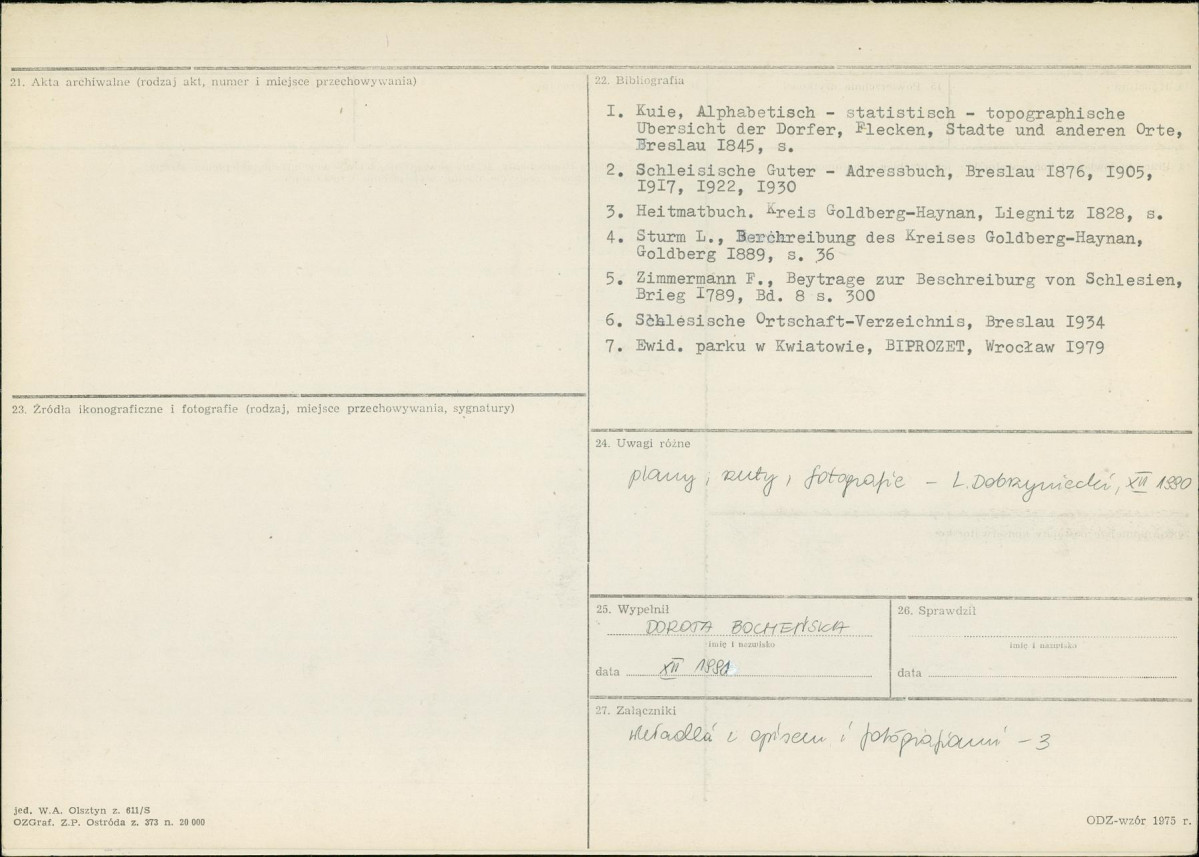 21. Akta archiwalne (rodzaj akt, numer i miejsce przechowywania)
22. Bibliografia
I. Kuie, Alphabetisch - statistisch - topographische
Ubersicht der Dorfer, Flecken, Stadte und anderen Orte,
Breslau I845, s.
2. Schleisische Guter - Adressbuch, Breslau I876, I905,
I9I7, I922, I930
3. Heitmatbuch. Kreis Goldberg-Haynan, Liegnitz I828, s.
4. Sturm L., Berchreibung des Kreises Goldberg-Haynan,
Goldberg I889, s. 36
5. Zimmermann F., Beytrage zur Beschreiburg von Schlesien,
Brieg I789, Bd. 8 s. 300
6. Schlesische Ortschaft-Verzeichnis, Breslau I934
7. Ewid. parku w Kwiatowie, BIPROZET, Wrocław I979
23. Źródła ikonograficzne i fotografie (rodzaj, miejsce przechowywania, sygnatury)
24. Uwagi różne
plany, rzuty, fotografie - L. Dobrzyniecki, XII 1990
25. Wypełnił
DOROTA BOCHEŃSKA
imię i nazwisko
data XII 1991
26. Sprawdził
imię i nazwisko
data
27. Załączniki
wkładki z opisem i fotografiami - 3
jed. W.A. Olsztyn z. 611/S
OZGraf. Z.P. Ostróda z. 373 n. 20 000
ODZ-wzór 1975 r.